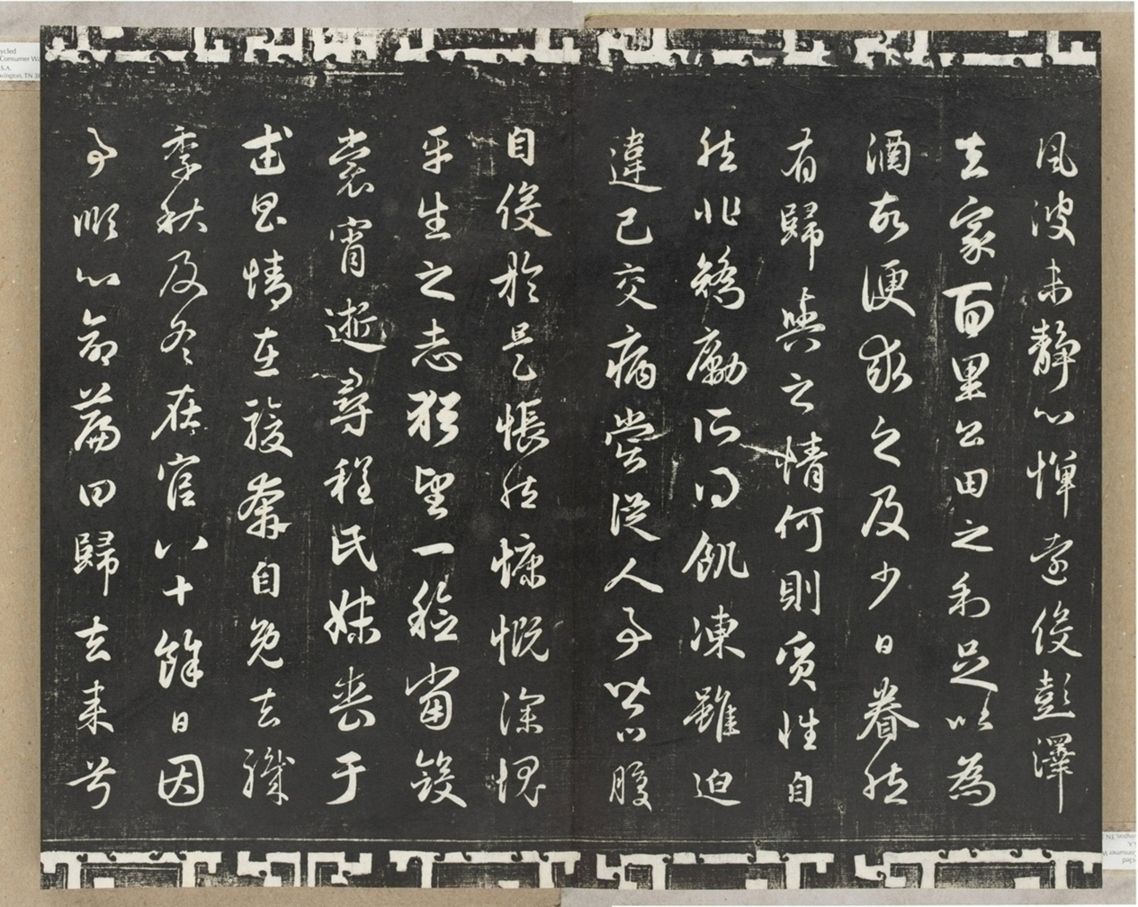 風波未靜心憚遠役彭澤
去家百里公田之利足以為
酒故便求之及少日眷然
有歸與之情何則質性自
然非矯勵所得飢凍雖迫
違己交病嘗從人事皆口腹
自役於是悵然慷慨深愧
平生之志猶望一稔當斂
裳宵逝尋程氏妹喪于
武昌情在駿奔自免去職
季秋及冬在官八十餘日因
事順心命篇曰歸去來兮
ycled
Consumer Wa
S.A.